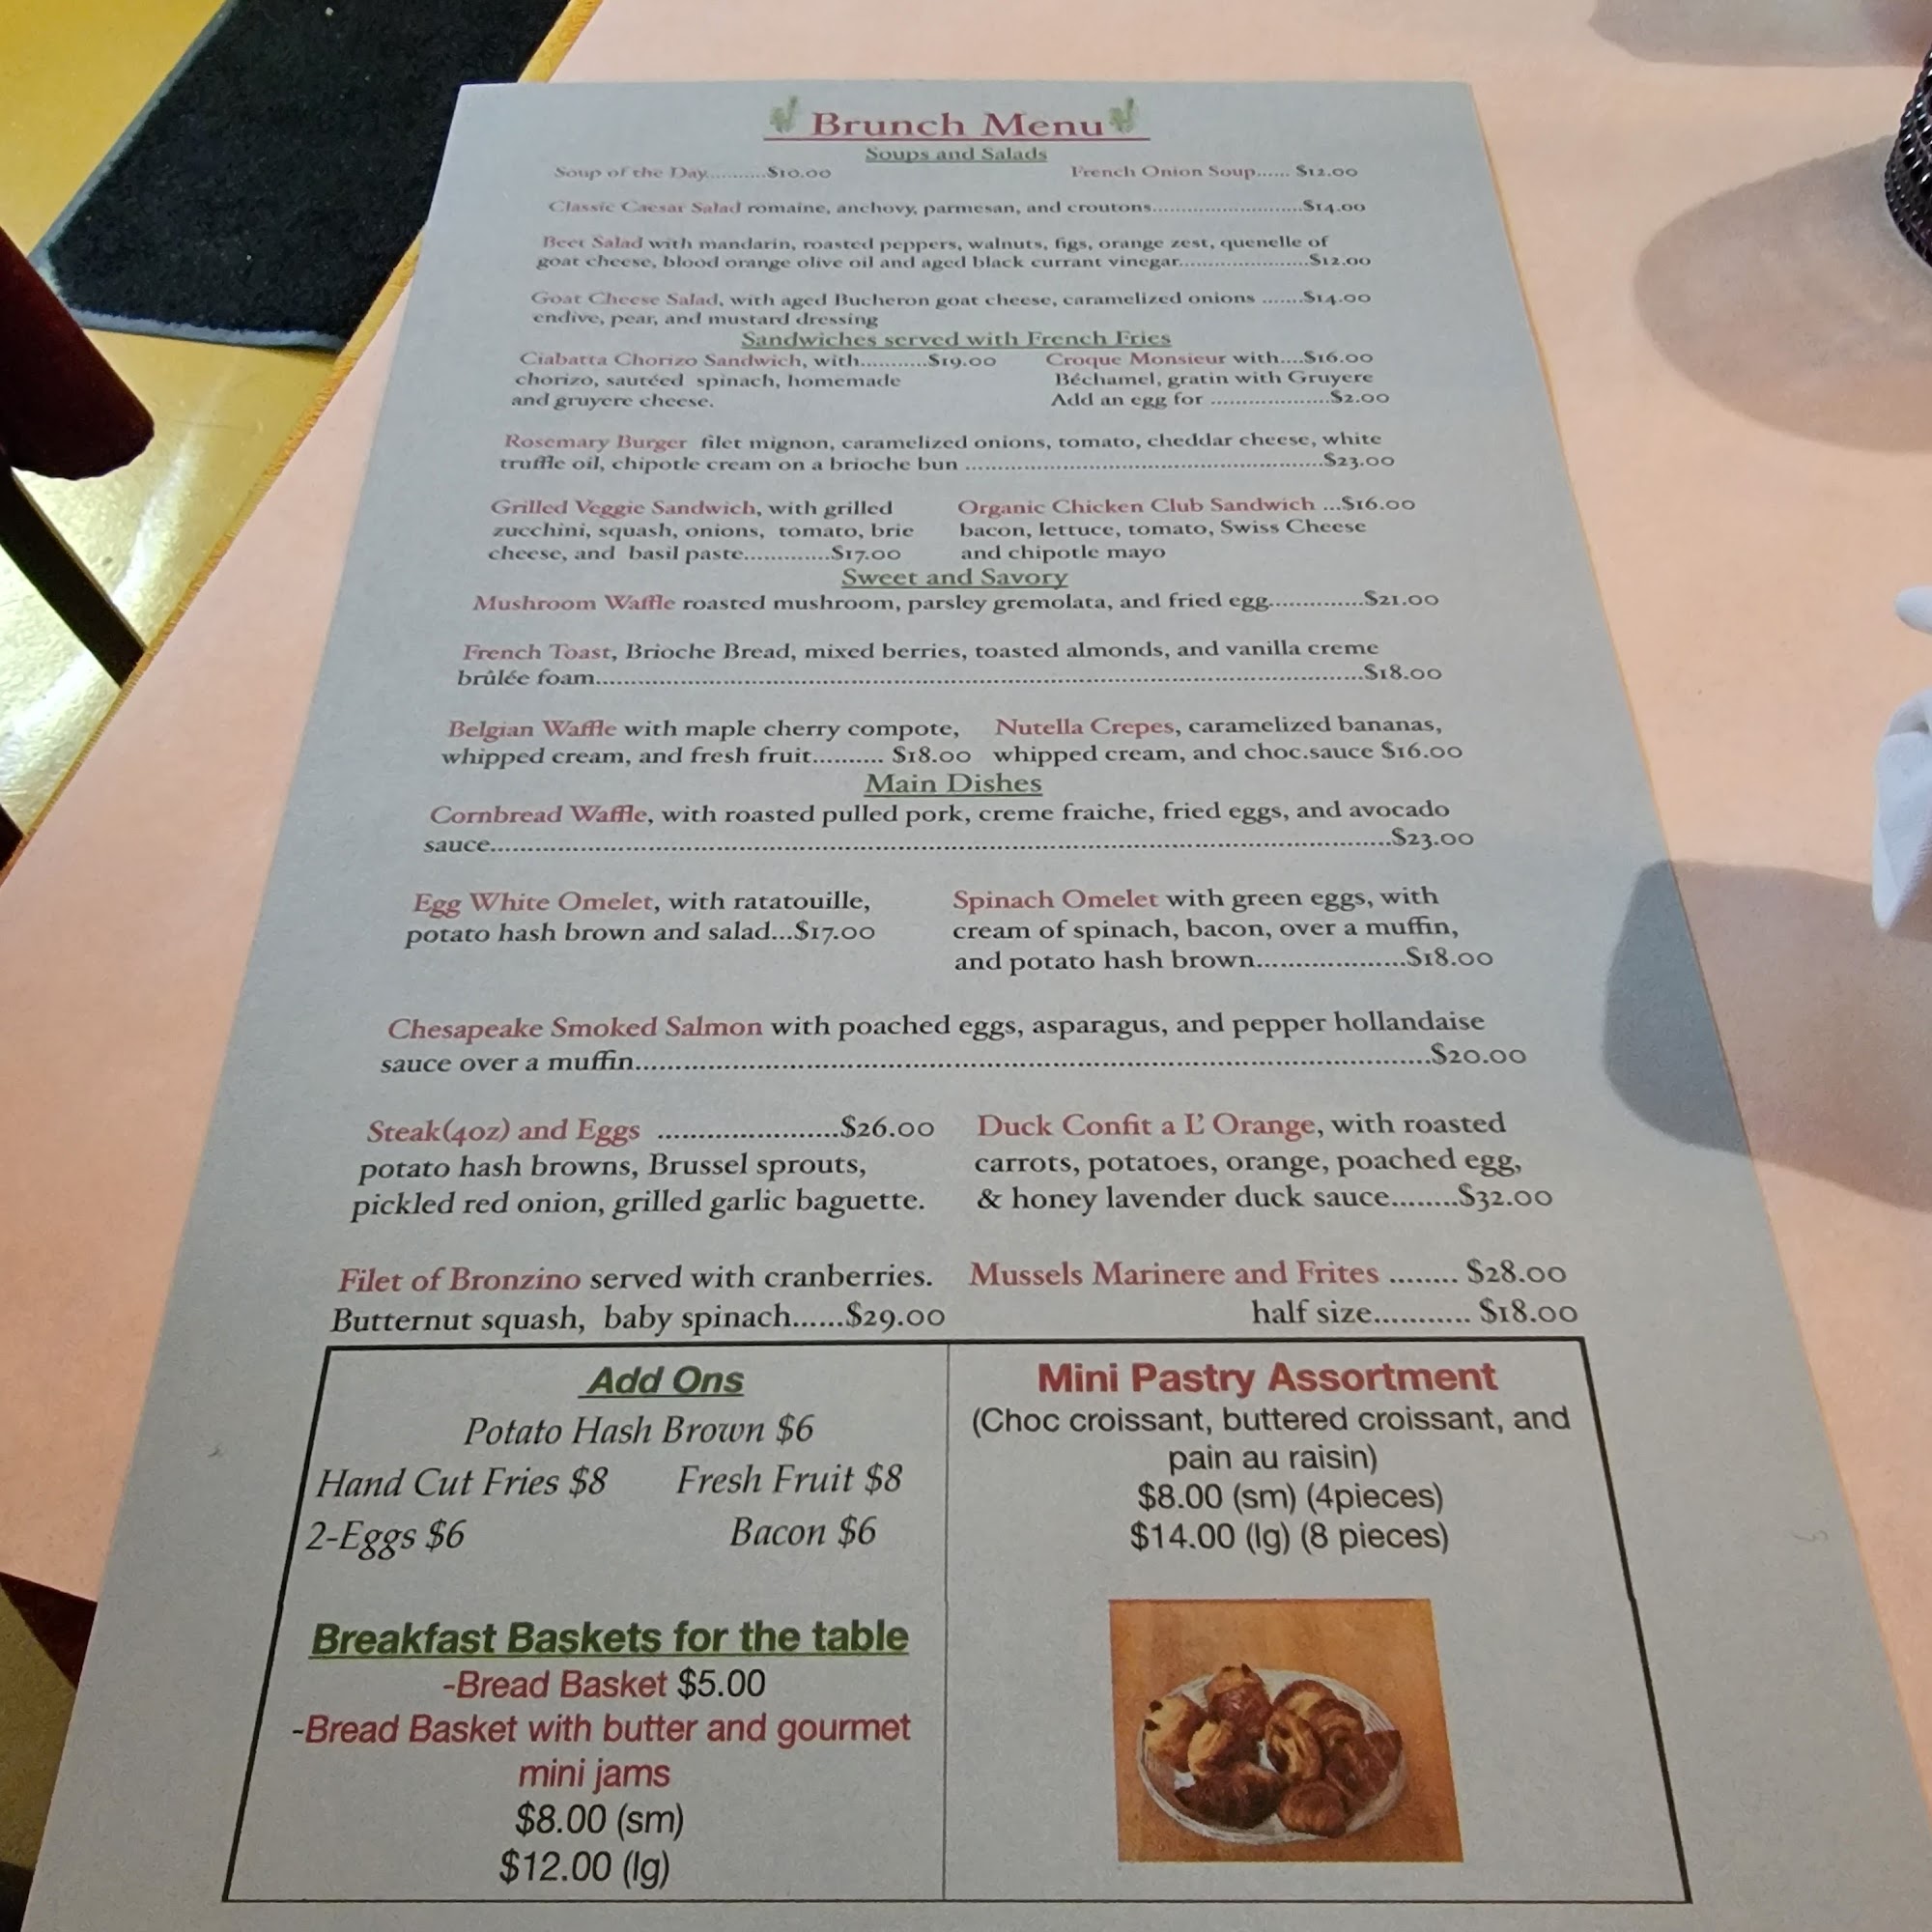 Brunch Menu
Soups and Salads
Soup of the Day...........$10.00 French Onion Soup...... $12.00
Classic Caesar Salad romaine, anchovy, parmesan, and croutons..........................$14.00
Beet Salad with mandarin, roasted peppers, walnuts, figs, orange zest, quenelle of
goat cheese, blood orange olive oil and aged black currant vinegar......................$12.00
Goat Cheese Salad, with aged Bucheron goat cheese, caramelized onions .......$14.00
endive, pear, and mustard dressing
Sandwiches served with French Fries
Ciabatta Chorizo Sandwich, with...........$19.00
chorizo, sautéed spinach, homemade
and gruyere cheese.
Croque Monsieur with....$16.00
Béchamel, gratin with Gruyere
Add an egg for ....................$2.00
Rosemary Burger filet mignon, caramelized onions, tomato, cheddar cheese, white
truffle oil, chipotle cream on a brioche bun ......................................................$23.00
Grilled Veggie Sandwich, with grilled
zucchini, squash, onions, tomato, brie
cheese, and basil paste.............$17.00
Organic Chicken Club Sandwich ...$16.00
bacon, lettuce, tomato, Swiss Cheese
and chipotle mayo
Sweet and Savory
Mushroom Waffle roasted mushroom, parsley gremolata, and fried egg..............$21.00
French Toast, Brioche Bread, mixed berries, toasted almonds, and vanilla creme
brûlée foam..............................................................................................................$18.00
Belgian Waffle with maple cherry compote,
whipped cream, and fresh fruit.......... $18.00
Nutella Crepes, caramelized bananas,
whipped cream, and choc.sauce $16.00
Main Dishes
Cornbread Waffle, with roasted pulled pork, creme fraiche, fried eggs, and avocado
sauce.........................................................................................................................$23.00
Egg White Omelet, with ratatouille,
potato hash brown and salad...$17.00
Spinach Omelet with green eggs, with
cream of spinach, bacon, over a muffin,
and potato hash brown....................$18.00
Chesapeake Smoked Salmon with poached eggs, asparagus, and pepper hollandaise
sauce over a muffin...................................................................................................$20.00
Steak(4oz) and Eggs .......................$26.00
potato hash browns, Brussel sprouts,
pickled red onion, grilled garlic baguette.
Duck Confit a L' Orange, with roasted
carrots, potatoes, orange, poached egg,
& honey lavender duck sauce........$32.00
Filet of Bronzino served with cranberries.
Butternut squash, baby spinach......$29.00
Mussels Marinere and Frites ........ $28.00
half size............ $18.00
Add Ons
Potato Hash Brown $6
Hand Cut Fries $8 Fresh Fruit $8
2-Eggs $6 Bacon $6
Breakfast Baskets for the table
-Bread Basket $5.00
-Bread Basket with butter and gourmet
mini jams
$8.00 (sm)
$12.00 (lg)
Mini Pastry Assortment
(Choc croissant, buttered croissant, and
pain au raisin)
$8.00 (sm) (4pieces)
$14.00 (lg) (8 pieces)